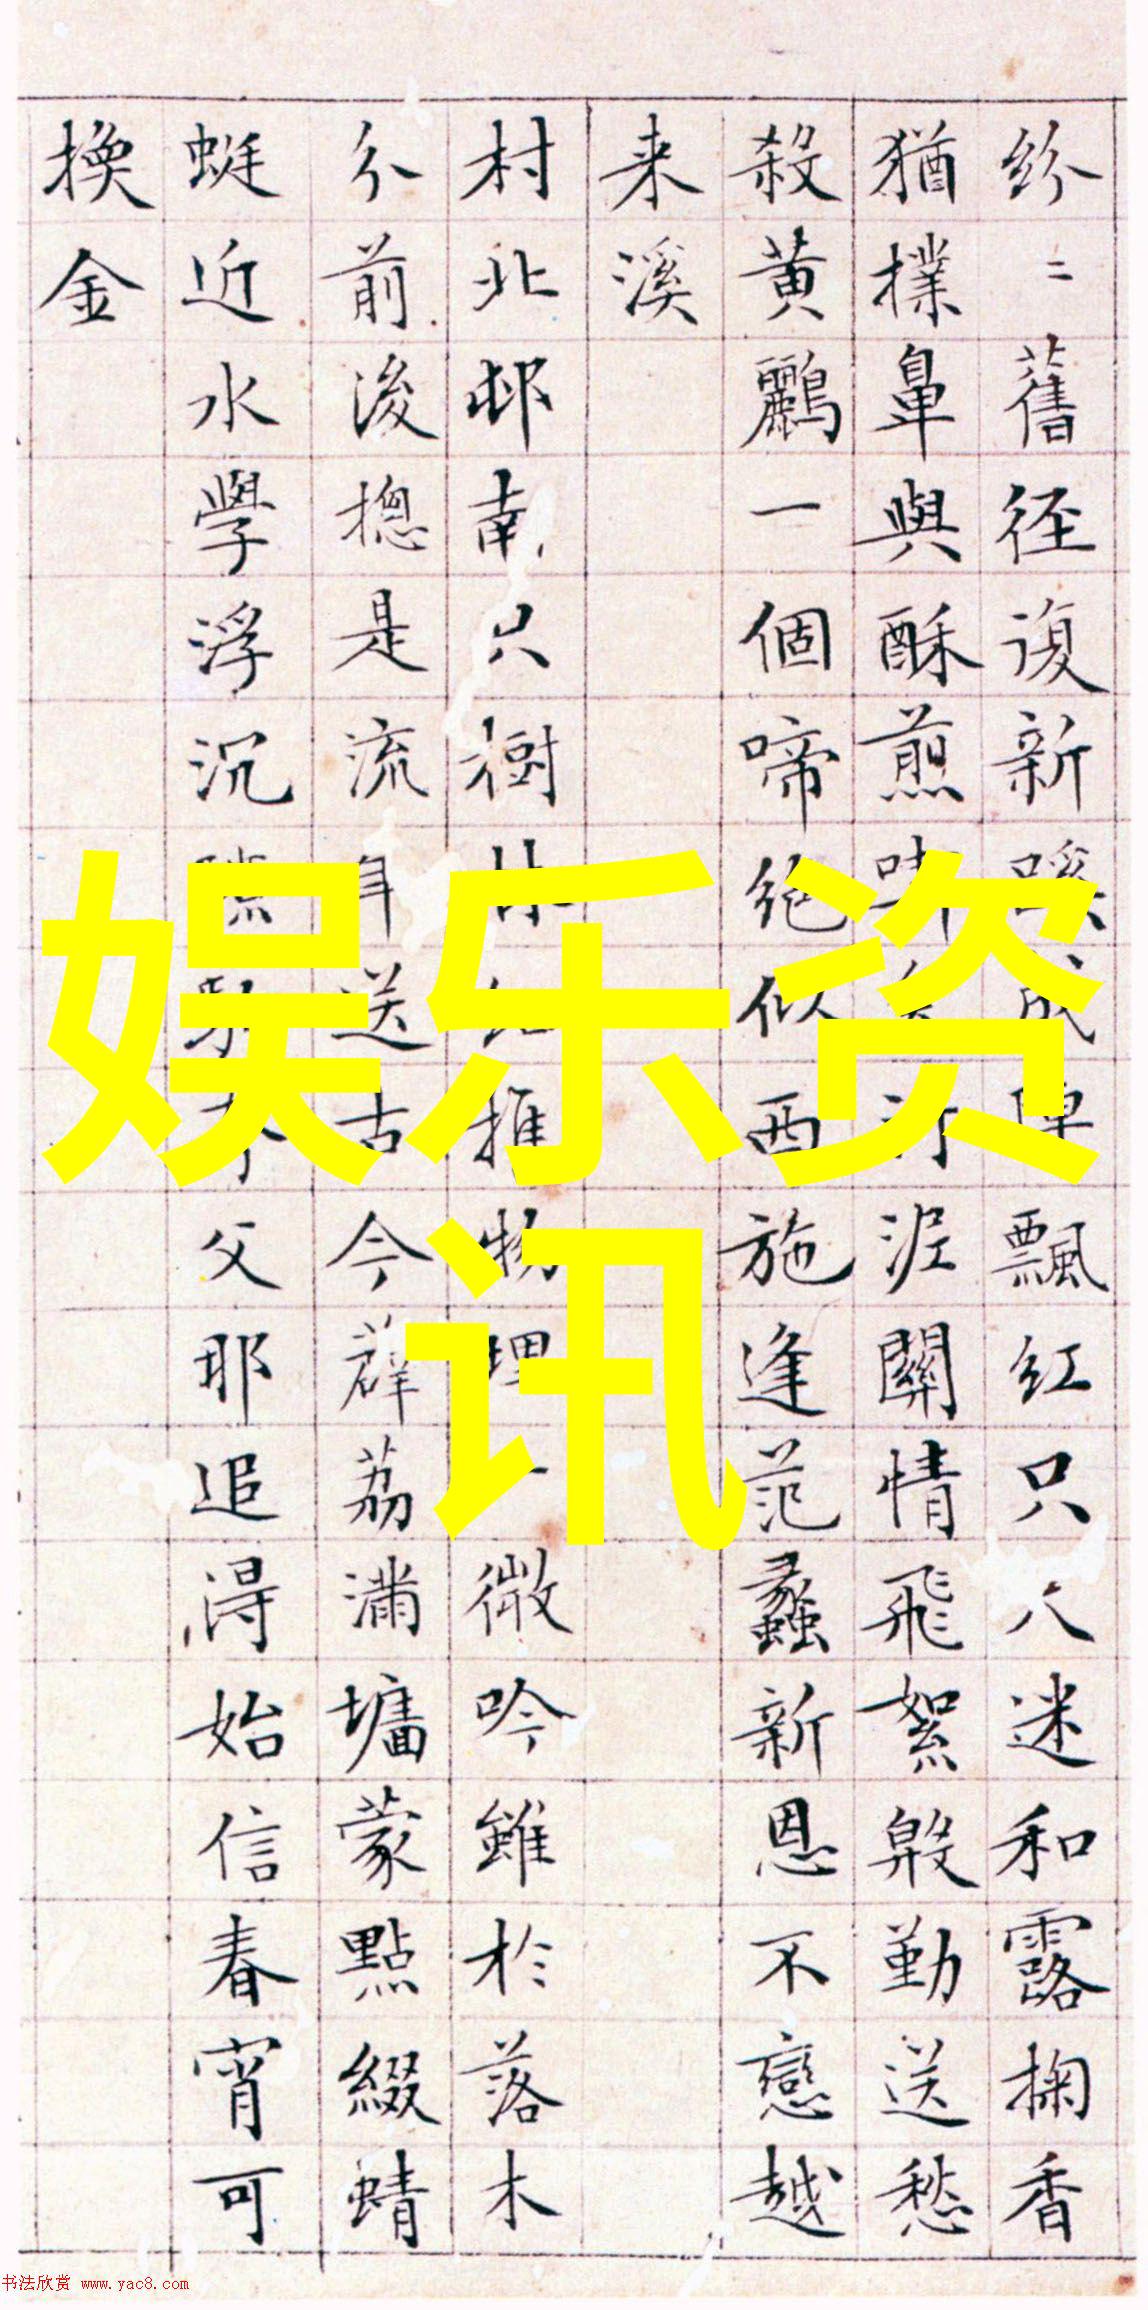 紛二舊徑復新蹊成陣飄紅只迷和露掬香
猶撲鼻與酥煎泥關情飛絮殷勤送愁
殺黄鸝一個啼絕似西施逢范蠡新恩不戀越
来溪
村北邨南只樹推物理微吟雖於落木
分前後摠是流年送古今薜荔滿墻蒙點綴蜻
蜓近水學浮沉父耶追得始信春宵可
換金
娱乐资
讯
书法欣赏 www.yac8.com